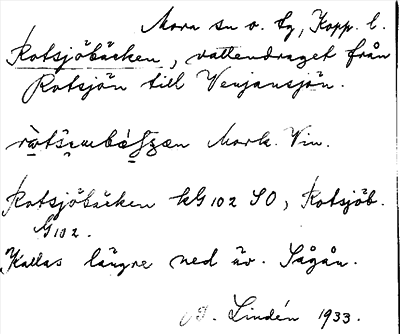 Mora sn o. tg, Kopp. l.
Rotsjöbäcken, vattendraget från
Rotsjön till Venjansjön.
Mork. Vin.
Rotsjöbäcken kG102 SO, Rotsjöb.
G102.
Kallas längre ned äv. Sågån.
B. Lindén 1933.